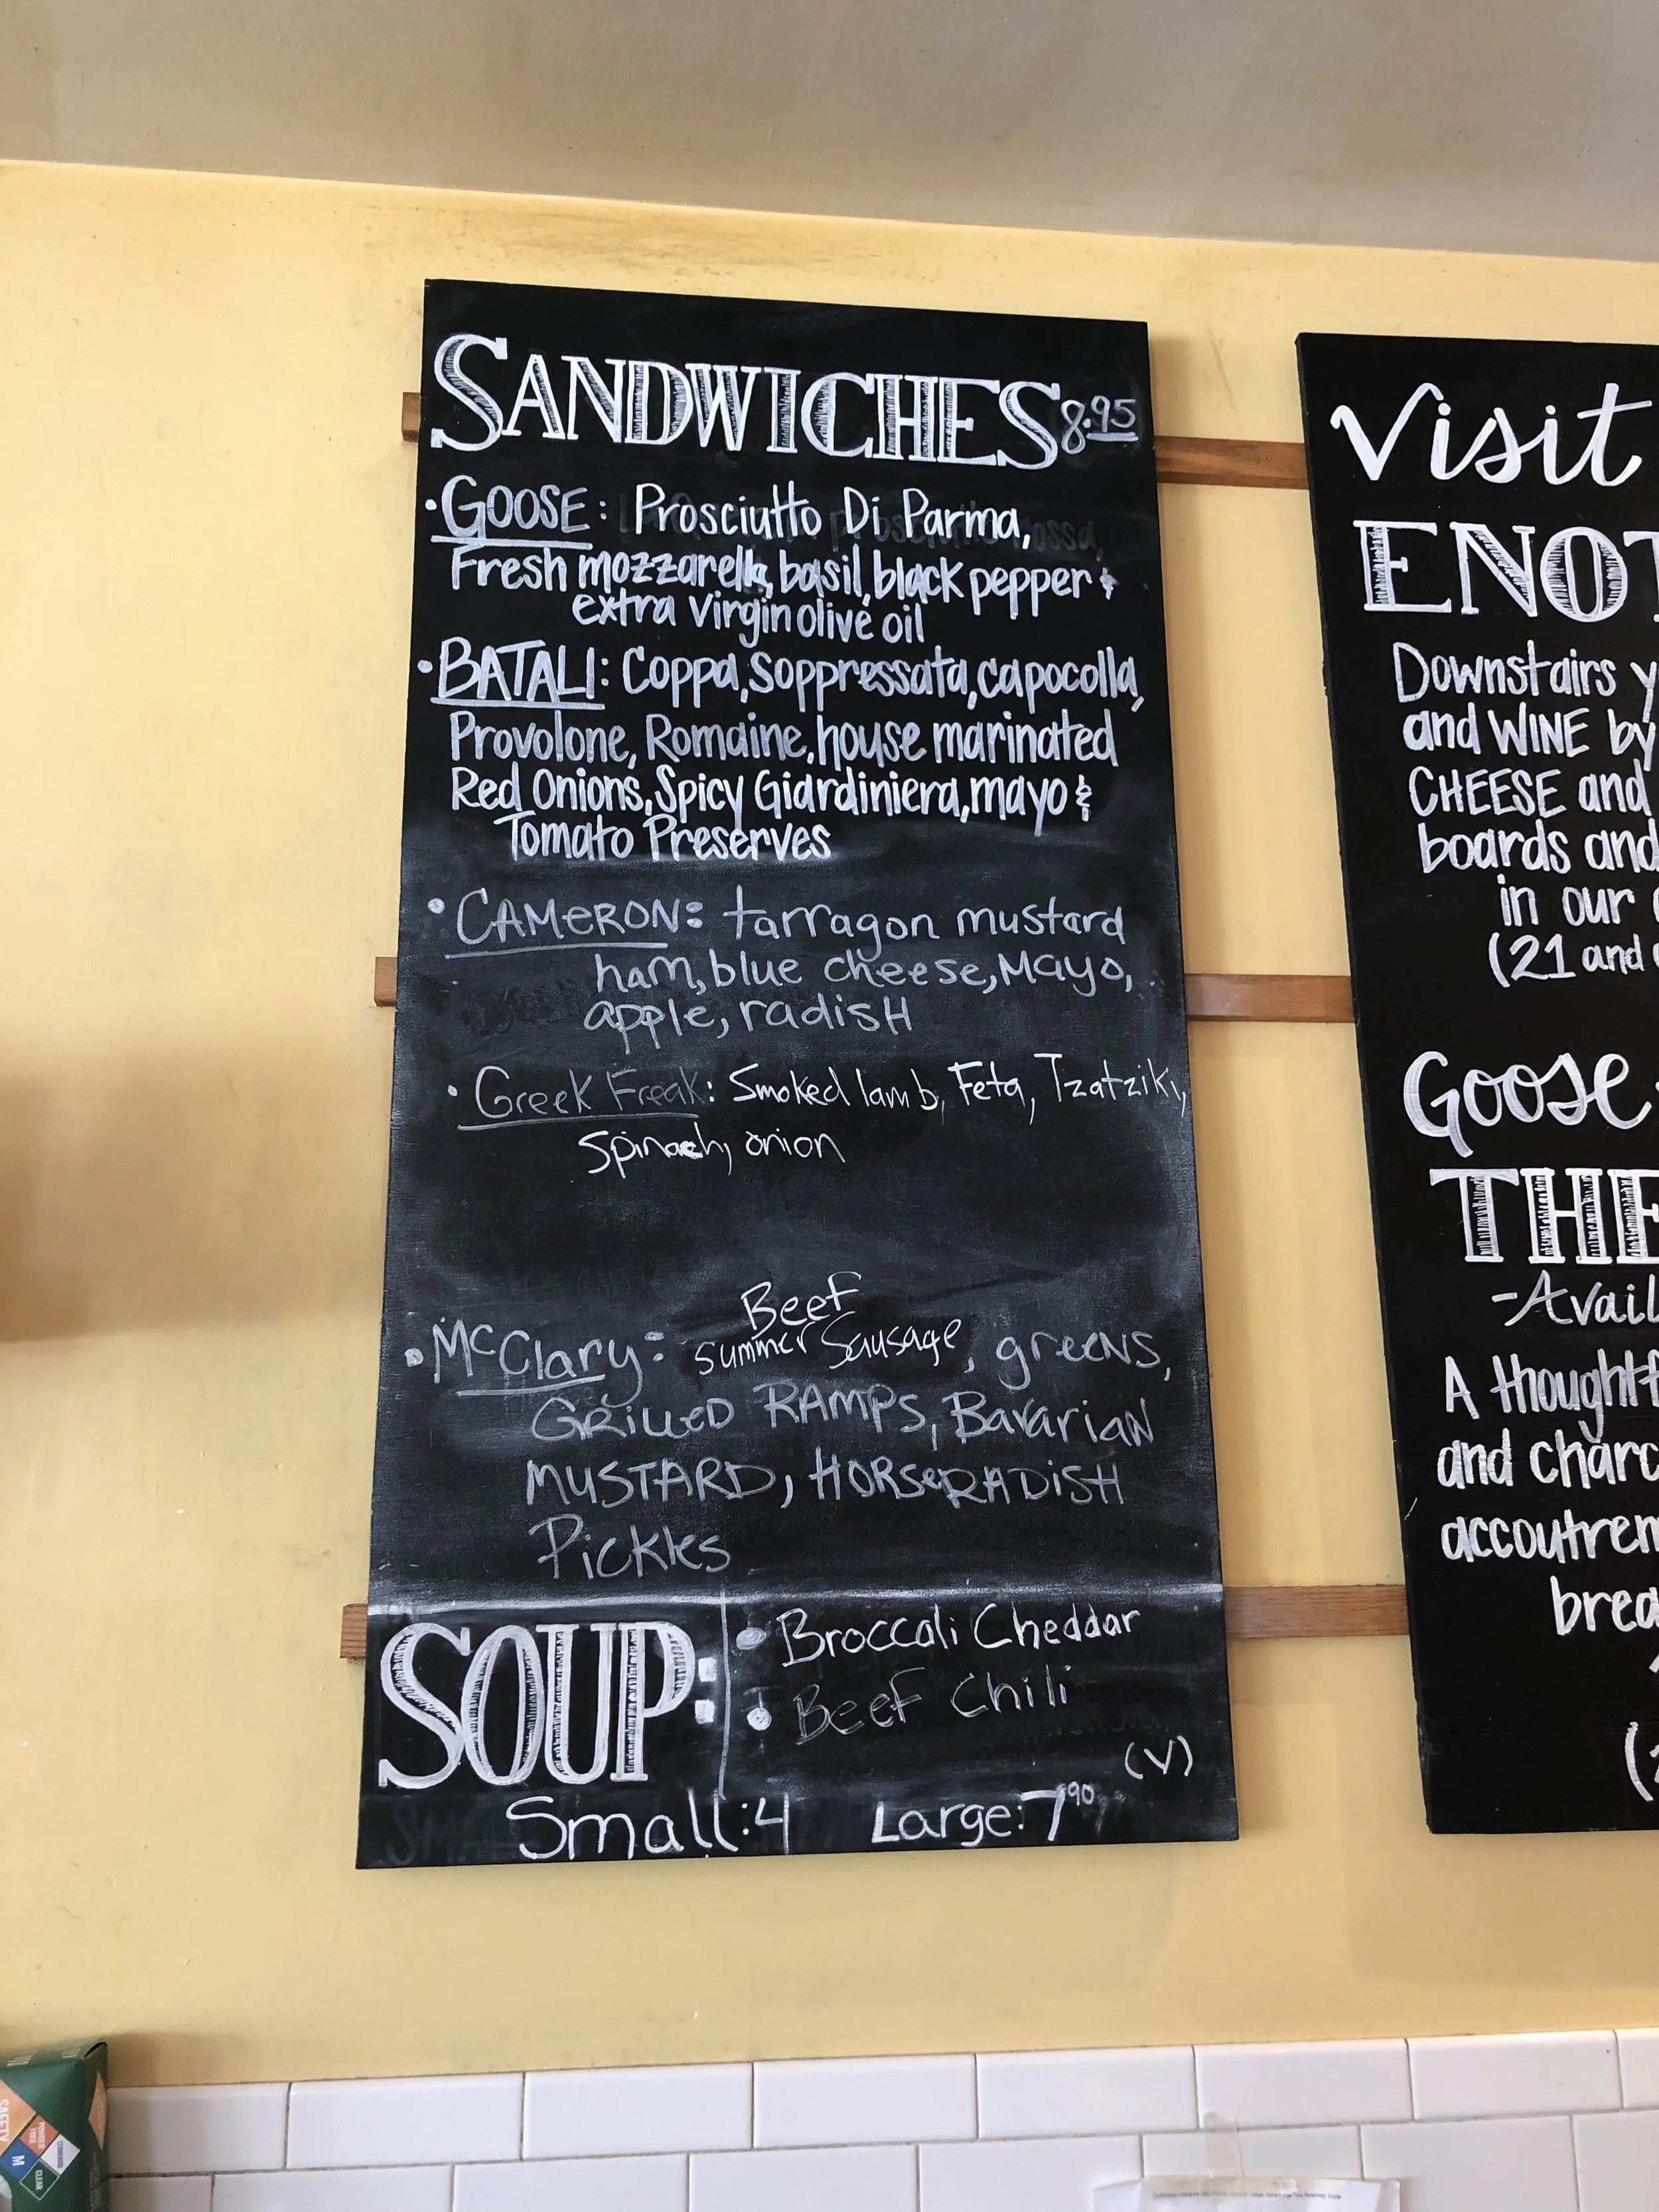 SANDWICHES 8.95
• GOOSE: Prosciutto Di Parma,
Fresh mozzarella, basil, black pepper &
extra virgin olive oil
• BATALI: Coppa, Soppressata, capocolla,
Provolone, Romaine, house marinated
Red Onions, Spicy Giardiniera, mayo &
Tomato Preserves
• CAMERON: tarragon mustard
ham, blue cheese, Mayo,
apple, radish
• Greek Freak: Smoked lamb, Feta, Tzatziki,
Spinach, onion
Beef
• McClary: Summer Sausage, greens,
GRILLED RAMPS, Bavarian
MUSTARD, HORSERADISH
Pickles
SOUP:
• Broccoli Cheddar
• Beef Chili
(V)
Small: 4 Large: 7.90
Visit
ENOT
Downstairs y
and WINE by
CHEESE and
boards and
in our
(21 and
Goose
THE
-Avail
A thoughtf
and charc
accoutrem
brea
SAFETY
CLEAR
M